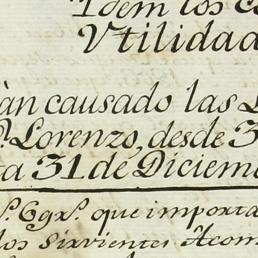 Idem los
Vtilidad
àn causado las
Lorenzo, desde 3
a 31 de Diciem
que importa
los Sirvientes Acom